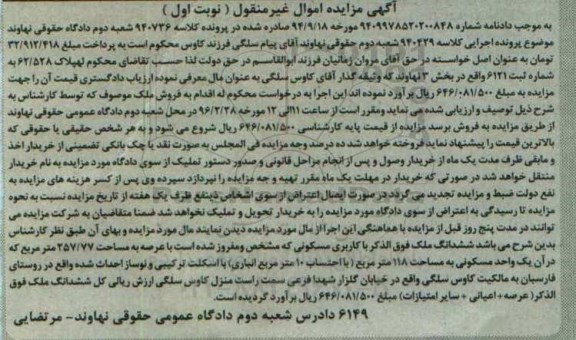 آگهی مزایده اموال غیرمنقول ( نوبت اول )
به موجب دادنامه شماره ۹۴۰۹۹۷۸۵۲۰۲۰۰۸۴۸ مورخه ۹۴/۹/۱۸ صادره شده در پرونده کلاسه ۹۴۰۷۳۶ شعبه دوم دادگاه حقوقی نهاوند
موضوع پرونده اجرایی کلاسه ۹۴۰۴۲۹ شعبه دوم حقوقی نهاوند آقای پیام سلگی فرزند کاوس محکوم است به پرداخت مبلغ ۳۲/۹۱۲/۴۱۸
تومان به عنوان اصل خواسته در حق آقای مروان زمانیان فرزند ابوالقاسم در حق دولت لذا حسب تقاضای محکوم لهپلاک ۶۲/۵۲۸ به
شماره ثبت ۶۱۲۱ واقع در بخش ۳ نهاوند که وثیقه گذار آقای کاوس سلگی به عنوان مال معرفی نموده ارزیاب دادگستری قیمت آن را جهت
مزایده به مبلغ ۶۴۶/۰۸۱/۵۰۰ ریال برآورد نموده اند این اجرا به درخواست محکوم له اقدام به فروش ملک موصوف که توسط کارشناس به
شرح ذیل توصیف و ارزیابی شده می نماید ومقرر است از ساعت ۱۱الی ۱۲ مورخه ۹۶/۳/۲۸ در محل شعبه دوم دادگاه عمومی حقوقی نهاوند
از طریق مزایده به فروش برسد مزایده از قیمت پایه کارشناسی ۶۴۶/۰۸۱/۵۰۰ ریال شروع می شود و به هر شخص حقیقی یا حقوقی که
بالاترین قیمت را پیشنهاد نماید فروخته خواهد شد ده درصد وجه مزایده فی المجلس به صورت نقد یا چک بانکی تضمینی از خریدار اخذ
و مابقی ظرف مدت یک ماه از خریدار وصول و پس از انجام مراحل قانونی و صدور دستور تملیک از سوی دادگاه مورد مزایده به نام خریدار
منتقل خواهد شد در صورتی که خریدار در مهلت یک ماه مقرر تهیه و جه مزایده را نپردازد سپرده وی پس از کسر هزینه های مزایده به
نفع دولت ضبط و مزایده تجدید می گردد در صورت ایصال اعتراض از سوی اشخاص ذینفع ظرف یک هفته از تاریخ مزایده نسبت به نحوه
مزایده تا رسیدگی به اعتراض از سوی دادگاه مورد مزایده را به خریدار تحویل و تملیک نخواهد شد ضمنا متقاضیان به شرکت مزایده می
توانند در مدت پنج روز قبل از مزایده با هماهنگی این اجرا از مال مورد مزایده دیدن نمایند مال مورد مزایده و بهای آن طبق نظر کارشناس
بدین شرح می باشد ششدانگ ملک فوق الذکر با کاربری مسکونی که مشخص ومفروز شده است با عرصه به مساحت ۲۵۷/۷۷ متر مربع که
در آن یک واحد مسکونی به مساحت ۱۱۸ متر مربع ( با احتساب ۱۰ متر مربع انباری) با اسکلت ترکیبی و نوساز احداث شده واقع در روستای
فارسبان به مالکیت کاوس سلگی واقع در خیابان گلزار شهدا فرعی سمت راست منزل کاوس سلگی ارزش ریالی کل ششدانگ ملک فوق
الذکر( عرصه + اعیانی + سایر امتیازات) مبلغ ۶۴۶/۰۸۱/۵۰۰ ریال برآورد گردیده است.
۶۱۴۹ دادرس شعبه دوم دادگاه عمومی حقوقی نهاوند- مرتضایی